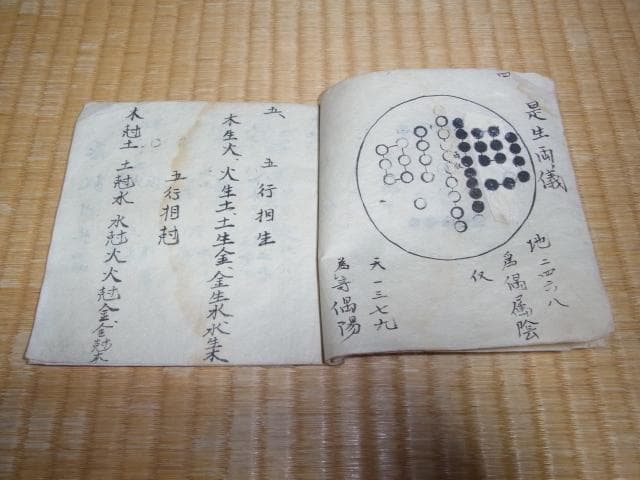 四
是生両儀
地二四六八
為偶属陰
仪
天一三七九
為竒偶陽
五、
五行相生
木生火、火生土土生金、金生水水生木
五行相尅
木尅土 土尅水 水尅火火尅金金尅木